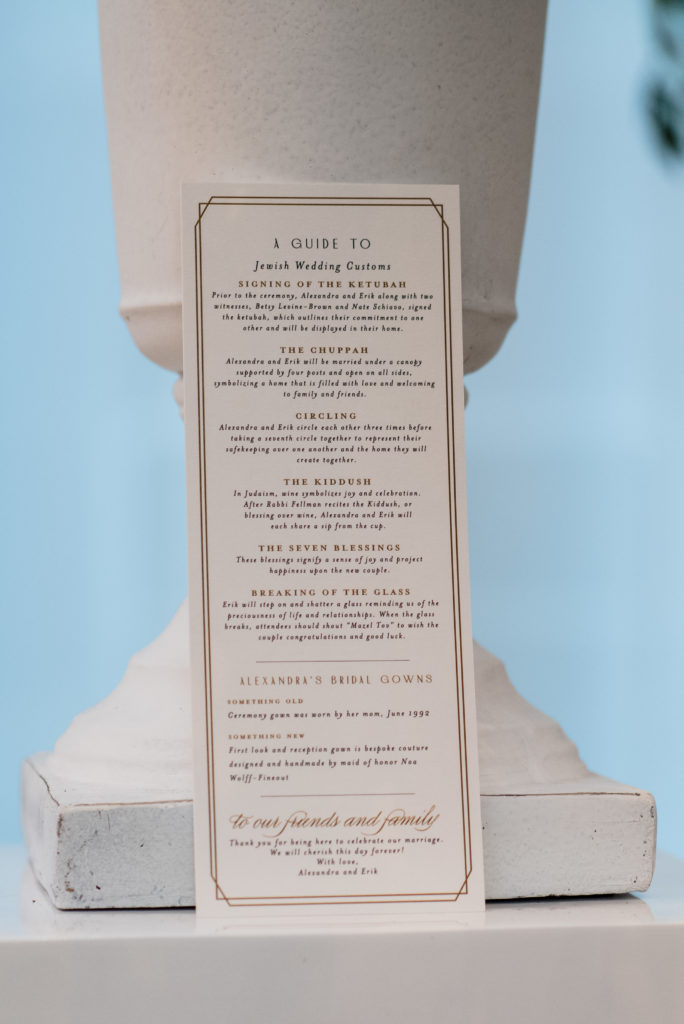 A GUIDE TO
Jewish Wedding Customs
SIGNING OF THE KETUBAH
Prior to the ceremony, Alexandra and Erik along with two
witnesses, Betsy Levine-Brown and Nate Schiavo, signed
the ketubah, which outlines their commitment to one
other and will be displayed in their home.
THE CHUPPAH
Alexandra and Erik will be married under a canopy
supported by four posts and open on all sides,
symbolizing a home that is filled with love and welcoming
to family and friends.
CIRCLING
Alexandra and Erik circle each other three times before
taking a seventh circle together to represent their
safekeeping over one another and the home they will
create together.
THE KIDDUSH
In Judaism, wine symbolizes joy and celebration.
After Rabbi Fellman recites the Kiddush, or
blessing over wine, Alexandra and Erik will
each share a sip from the cup.
THE SEVEN BLESSINGS
These blessings signify a sense of joy and project
happiness upon the new couple.
BREAKING OF THE GLASS
Erik will step on and shatter a glass reminding us of the
preciousness of life and relationships. When the glass
breaks, attendees should shout "Mazel Tov" to wish the
couple congratulations and good luck.
ALEXANDRA'S BRIDAL GOWNS
SOMETHING OLD
Ceremony gown was worn by her mom, June 1992
SOMETHING NEW
First look and reception gown is bespoke couture
designed and handmade by maid of honor Noa
Wolff-Fineout
to our friends and family
Thank you for being here to celebrate our marriage.
We will cherish this day forever!
With love,
Alexandra and Erik